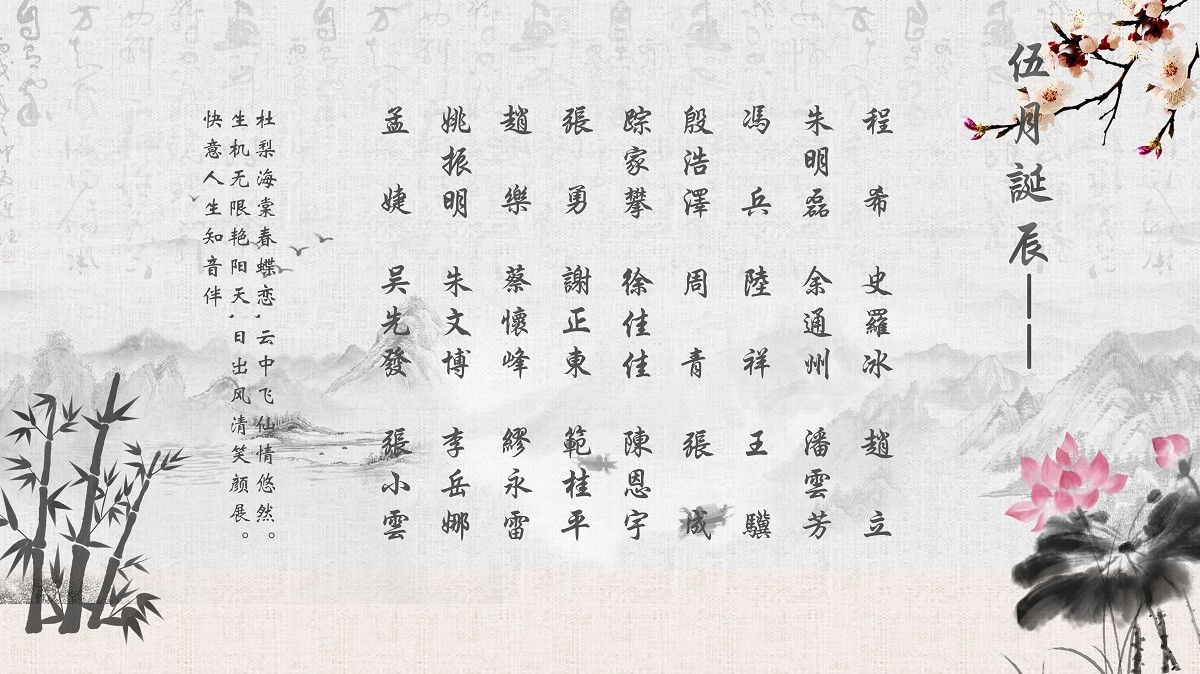 伍月誕辰——
程希 史羅冰 趙立
朱明磊 余通州 潘雲芳
馮兵 陸祥 王驥
殷浩澤 周青 張成
踪家攀 徐佳佳 陳恩宇
張勇 謝正東 範桂平
趙樂 蔡懷峰 繆永雷
姚振明 朱文博 李岳娜
孟婕 吴先發 張小雲
杜梨海棠春蝶恋，云中飞仙情悠然。
生机无限艳阳天，日出风清笑颜展。
快意人生知音伴